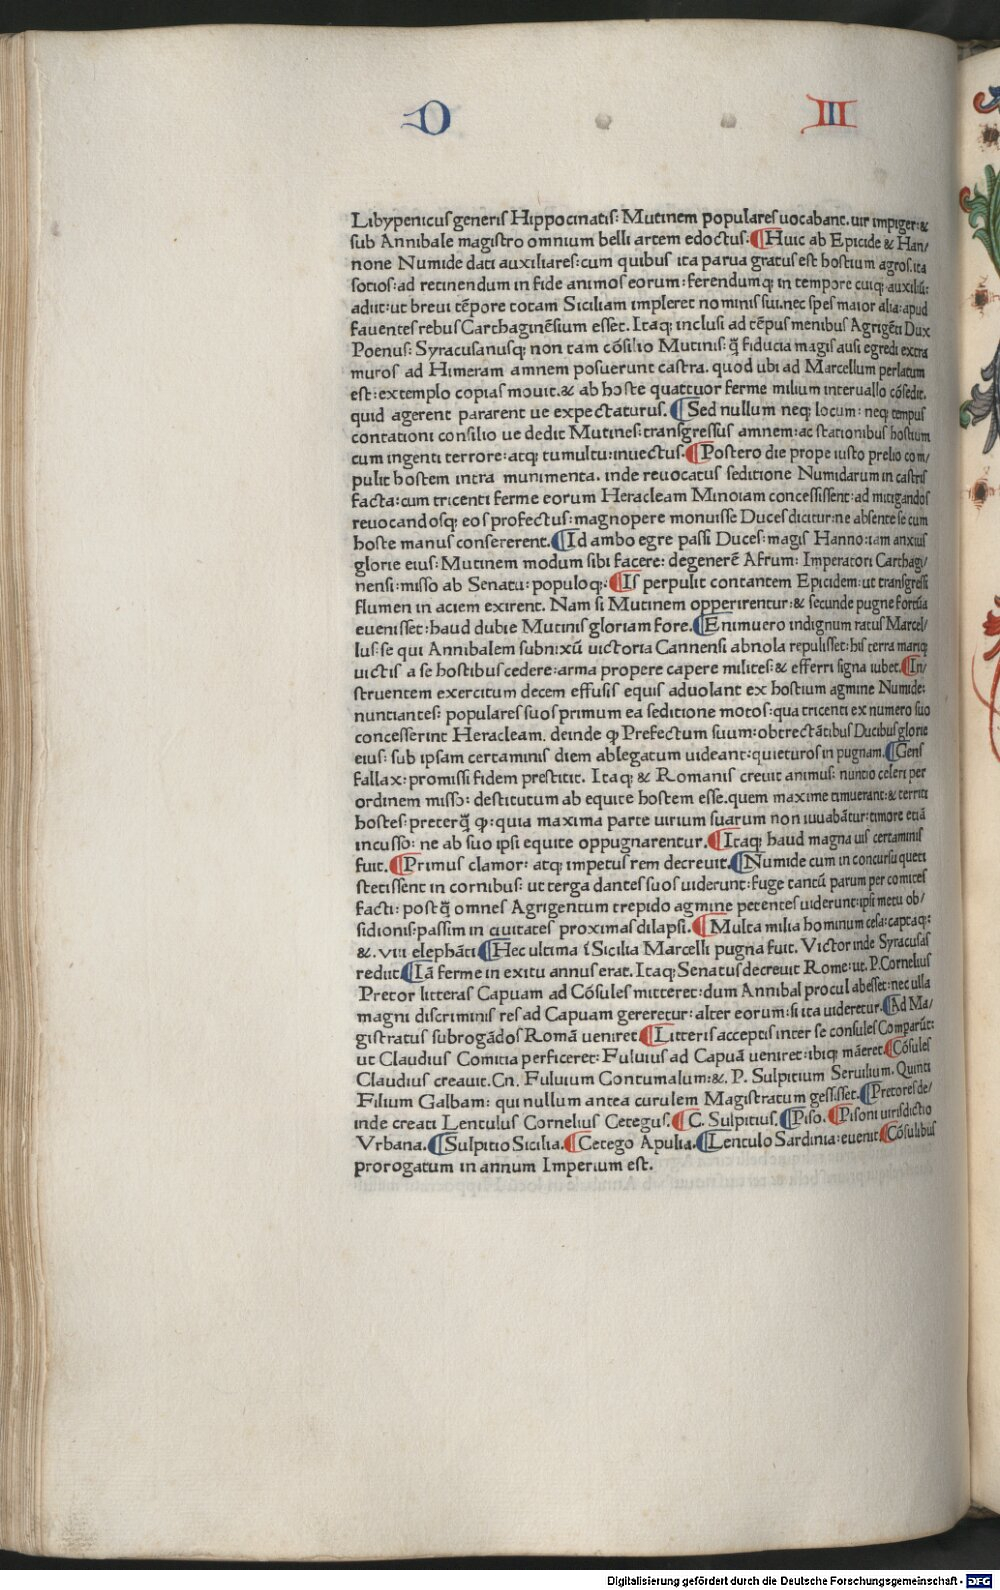 D III
Libypenicus generis Hippocinatis: Mutinem populares uocabant. uir impiger: &
sub Annibale magistro omnium belli artem edoctus. ¶Huic ab Epicide & Han/
none Numide dati auxiliares: cum quibus ita parua gratus est hostium agros. ita
sotios: ad retinendum in fide animos eorum: ferendumq; in tempore cuiq; auxiliū:
adiit: ut breui tēpore totam Siciliam impleret nominis sui. nec spes maior alia: apud
fauentes rebus Carthaginēsium esset. Itaq; inclusi ad tēpus menibus Agrigēti Dux
Poenus: Syracusanusq; non tam cōsilio Mutinis: q̃ fiducia magis ausi egredi extra
muros ad Himeram amnem posuerunt castra. quod ubi ad Marcellum perlatum
est: extemplo copias mouit. & ab hoste quattuor ferme milium interuallo cōsedit.
quid agerent pararent ue expectaturus. ¶Sed nullum neq; locum: neq; tempus
contationi consilio ue dedit Mutines: transgressus amnem: ac stationibus hostium
cum ingenti terrore: atq; tumultu: inuectus. ¶Postero die prope iusto prelio com/
pulit hostem intra munimenta. inde reuocatus seditione Numidarum in castris
facta: cum tricenti ferme eorum Heracleam Minoiam concessissent: ad mitigandos
reuocandosq; eos profectus: magnopere monuisse Duces dicitur: ne absente se cum
hoste manus consererent. ¶Id ambo egre passi Duces: magis Hanno: iam anxius
glorie eius: Mutinem modum sibi facere: degenerē Afrum: Imperatori Carthagi/
nensi: misso ab Senatu: populoq;. ¶Is perpulit contantem Epicidem: ut transgressi
flumen in aciem exirent. Nam si Mutinem opperirentur: & secunde pugne fortūa
euenisset: haud dubie Mutinis gloriam fore. ¶Enimuero indignum ratus Marcel/
lus: se qui Annibalem subnixū uictoria Cannensi abnola repulisset: his terra mariq;
uictis a se hostibus cedere: arma propere capere milites: & efferri signa iubet. ¶In/
struentem exercitum decem effusis equis aduolant ex hostium agmine Numide:
nuntiantes: populares suos primum ea seditione motos: qua tricenti ex numero suo
concesserint Heracleam. deinde ꝙ Prefectum suum: obtrectātibus Ducibus glorie
eius: sub ipsam certaminis diem ablegatum uideant: quieturos in pugnam. ¶Gens
fallax: promissi fidem prestitit. Itaq; & Romanis creuit animus: nuntio celeri per
ordinem misso: destitutum ab equite hostem esse. quem maxime timuerant: & territi
hostes: preterq̃ ꝙ: quia maxima parte uirium suarum non iuuabātur: timore etiā
incusso: ne ab suo ipsi equite oppugnarentur. ¶Itaq; haud magna uis certaminis
fuit. ¶Primus clamor: atq; impetus rem decreuit. ¶Numide cum in concursu quieti
stetissent in cornibus: ut terga dantes suos uiderunt: fuge tantū parum per comites
facti: postq̃ omnes Agrigentum trepido agmine petentes uiderunt: ipsi metu ob/
sidionis: passim in ciuitates proximas dilapsi. ¶Multa milia hominum cesa: captaq;:
&. viii elephāti ¶Hec ultima ī Sicilia Marcelli pugna fuit. Victor inde Syracusas
rediit ¶Iā ferme in exitu annus erat. Itaq; Senatus decreuit Rome: ut. P. Cornelius
Pretor litteras Capuam ad Cōsules mitteret: dum Annibal procul abesset: nec ulla
magni discriminis res ad Capuam gereretur: alter eorum: si ita uideretur. ¶Ad Ma/
gistratus subrogādos Romā ueniret. ¶Litteris acceptis inter se consules Comparūt:
ut Claudius Comitia perficeret: Fuluius ad Capuā ueniret: ibiq; māeret. ¶Cōsules
Claudius creauit. Cn. Fuluium Contumalum: &. P. Sulpitium Seruilium. Quinti
Filium Galbam: qui nullum antea curulem Magistratum gessisset. ¶Pretores de/
inde creati Lentulus Cornelius Cetegus. ¶C. Sulpitius. ¶Piso. ¶Pisoni uirisdictio
Vrbana. ¶Sulpitio Sicilia. ¶Cetego Apulia. ¶Lentulo Sardinia: euenit. ¶Cōsulibus
prorogatum in annum Imperium est.
Digitalisierung gefördert durch die Deutsche Forschungsgemeinschaft - DFG